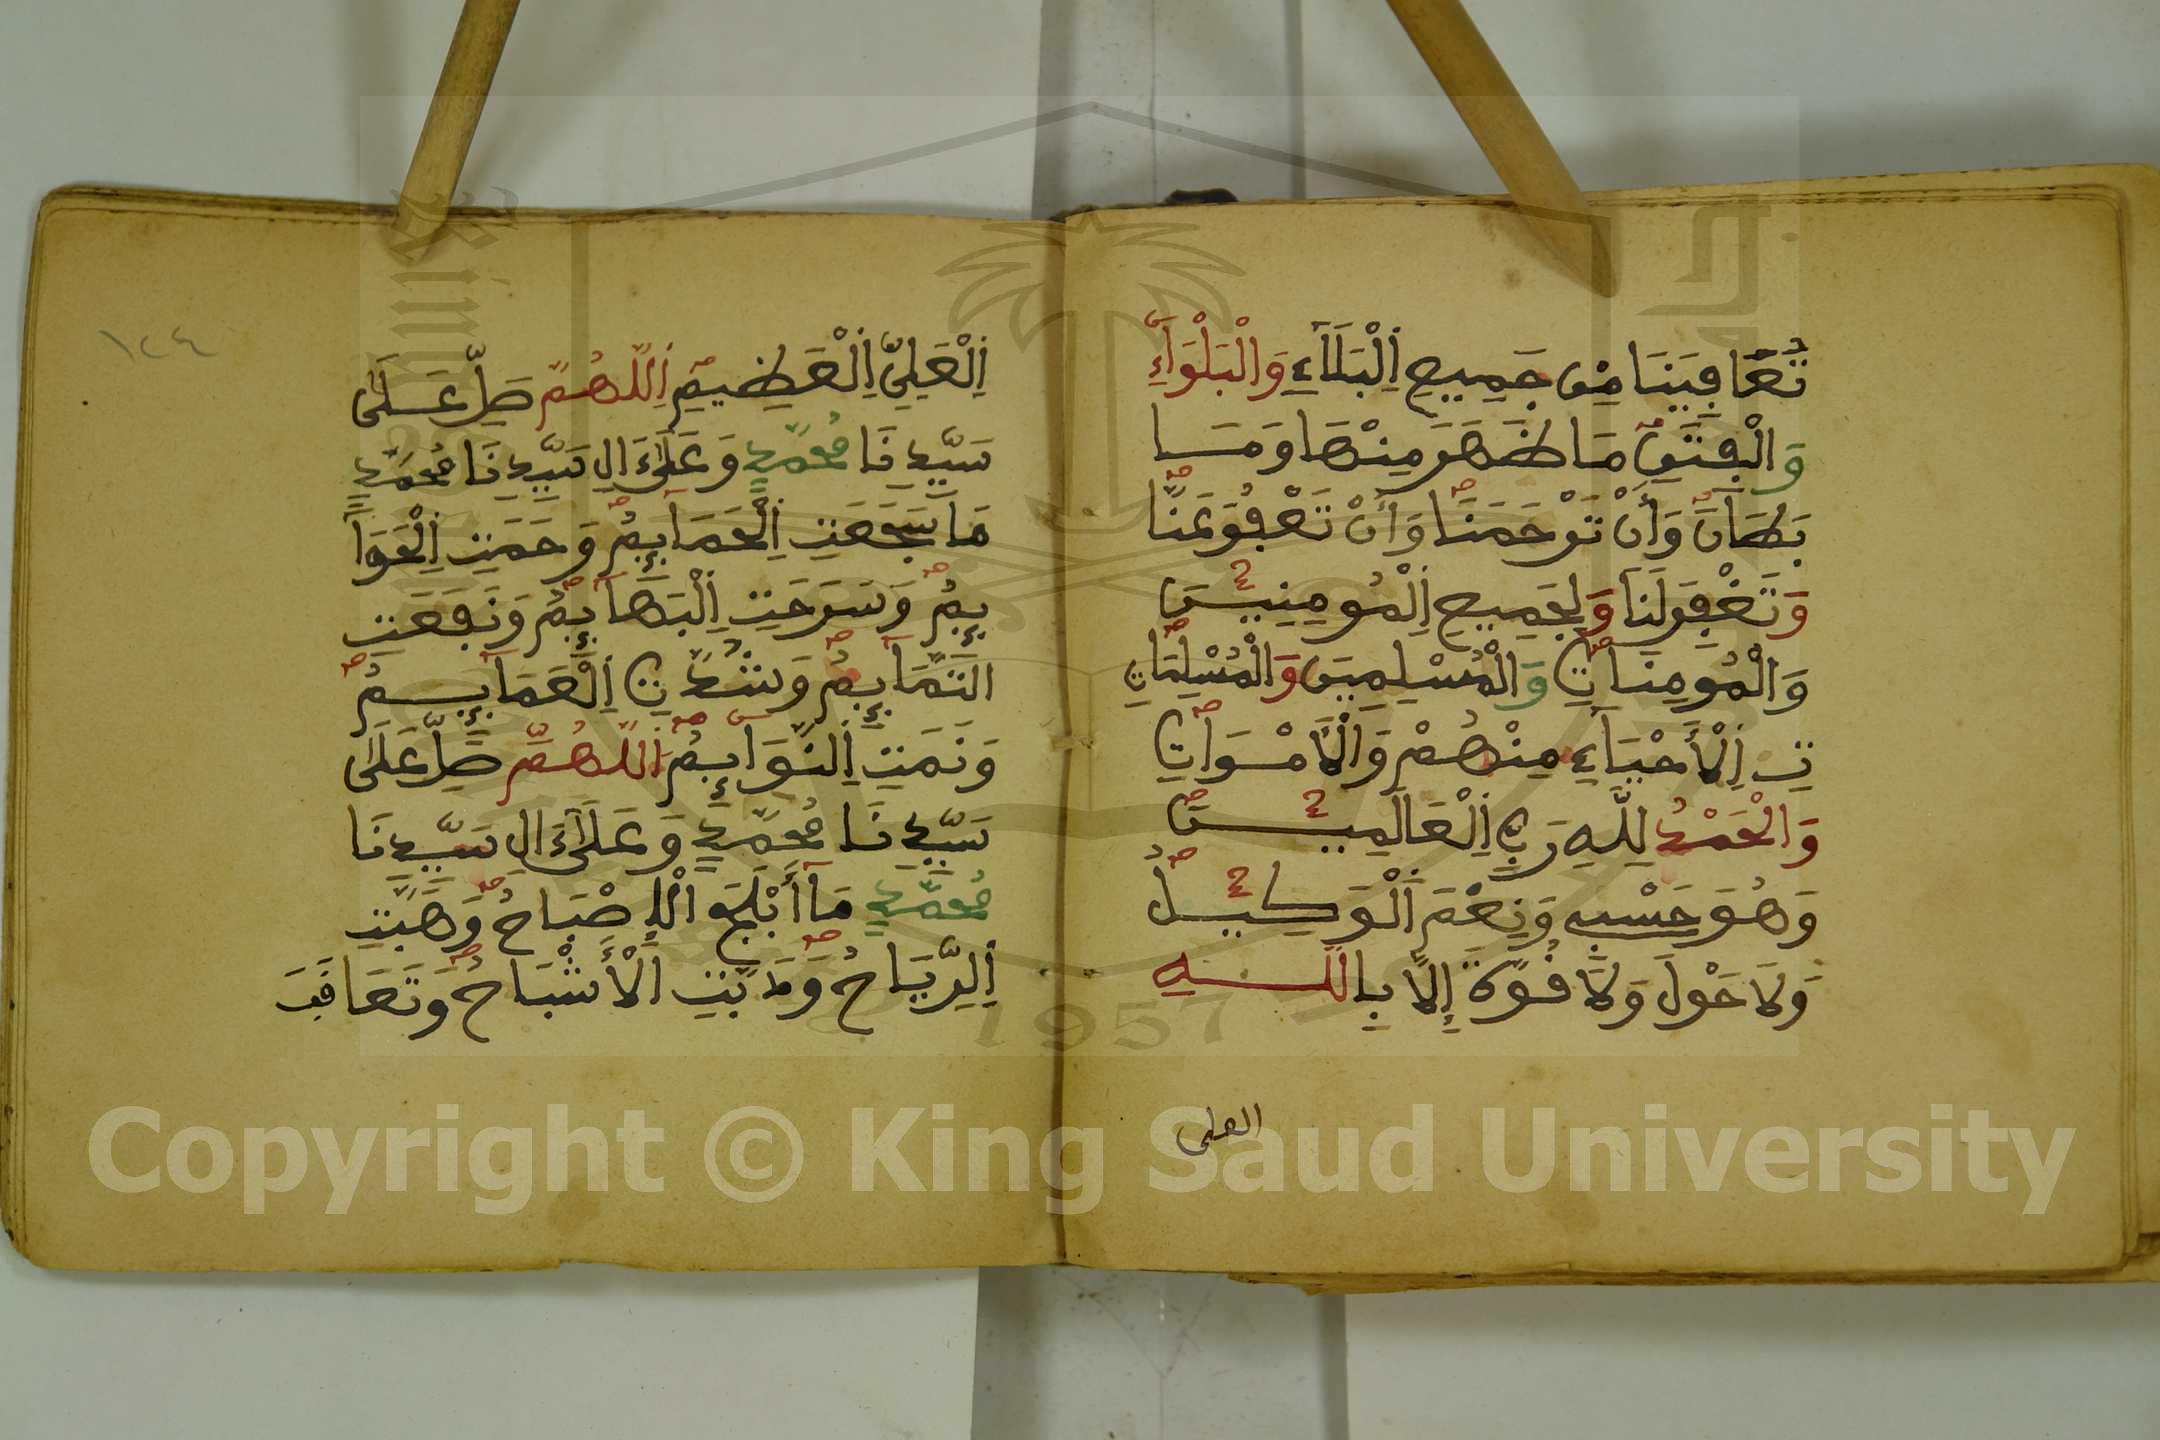 تُعَافِيَنَا مِن جَمِيعِ اِلْبَلَآءِ وَالْبَلْوَآءِ
وَالْفِتَنِ مَا ظَهَرَ مِنْهَا وَمَا
بَطَنَ وَأَنْ تَرْحَمَنَا وَأَنْ تَعْفُوَ عَنَّا
وَتَغْفِرَ لَنَا وَلِجَمِيعِ اِلْمُومِنِينَ
وَالْمُومِنَاتِ وَالْمُسْلِمِينَ وَالْمُسْلِمَاتِ
تِ اِلْأَحْيَآءِ مِنْهُمْ وَالْأَمْوَاتِ
وَالْحَمْدُ لِلَّهِ رَبِّ اِلْعَالَمِينَ
وَهُوَ حَسْبِي وَنِعْمَ اَلْوَكِيلُ
وَلَا حَوْلَ وَلَا قُوَّةَ إِلَّا بِاللَّهِ
العلي
١٢٤
اِلْعَلِيِّ اِلْعَظِيمِ اِللَّهُمَّ صَلِّ عَلَى
سَيِّدِنَا مُحَمَّدٍ وَعَلَىٰ ءَالِ سَيِّدِنَا مُحَمَّدٍ
مَا سَجَعَتِ اِلْحَمَآئِمُ وَحَمَتِ اِلْحَوَآ
ئِمُ وَسَرَحَتِ اِلْبَهَآئِمُ وَنَفَعَتِ
التَّمَآئِمُ وَشُدَّتِ اِلْعَمَآئِمُ
وَنَمَتِ اِلنَّوَآئِمُ اَللَّهُمَّ صَلِّ عَلَى
سَيِّدِنَا مُحَمَّدٍ وَعَلَىٰ ءَالِ سَيِّدِنَا
مُحَمَّدٍ مَآ أَبْلَجَ اَلْإِصْبَاحُ وَهَبَّتِ
اِلرِّيَاحُ وَدَبَّتِ اَلْأَشْبَاحُ وَتَعَاقَبَ
Copyright © King Saud University
1957